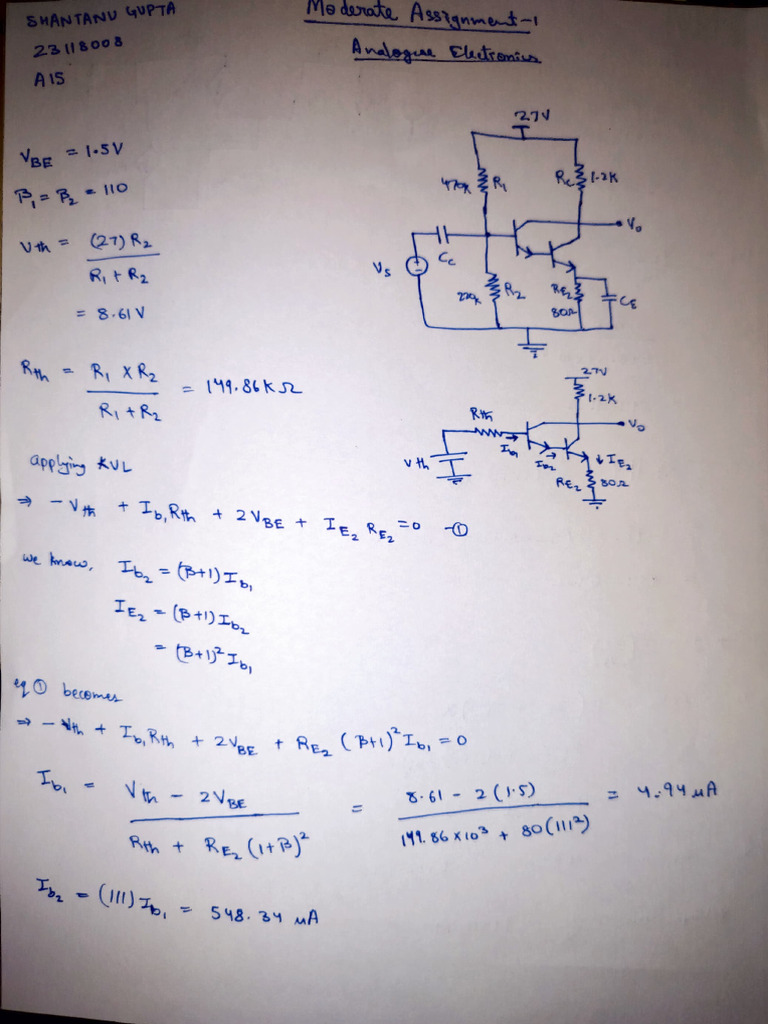 SHANTANU GUPTA
23118008
A15
Moderate Assignment-1
Analogue Electronics
V_BE = 1.5V
β₁ = β₂ = 110
V_th = (27) R₂ / (R₁ + R₂)
= 8.61 V
R_th = R₁ X R₂ / (R₁ + R₂) = 149.86K Ω
27V
470K R₁
R_C 1.2K
V_o
C_C
V_S
220K R₂
R_E2
80Ω
C_E
27V
1.2K
V_o
R_th
V_th
I_b1
I_b2
↓ I_E2
R_E2 80Ω
applying KVL
⇒ - V_th + I_b1 R_th + 2V_BE + I_E2 R_E2 = 0 -①
we know, I_b2 = (β+1) I_b1
I_E2 = (β+1) I_b2
= (β+1)² I_b1
eq ① becomes
⇒ - V_th + I_b1 R_th + 2V_BE + R_E2 (β+1)² I_b1 = 0
I_b1 = (V_th - 2V_BE) / (R_th + R_E2 (1+β)²) = (8.61 - 2(1.5)) / (149.86 X 10³ + 80(111²)) = 4.94 μA
I_b2 = (111) I_b1 = 548.34 μA